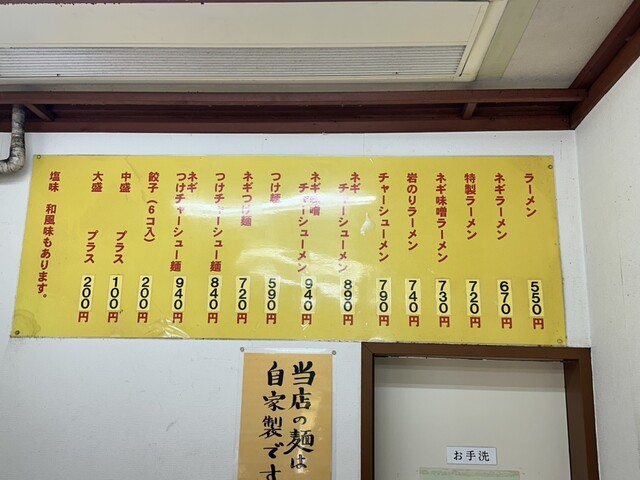 ラーメン 550円
ネギラーメン 670円
特製ラーメン 720円
ネギ味噌ラーメン 730円
岩のりラーメン 740円
チャーシューメン 790円
ネギ
チャーシューメン 890円
ネギ味噌
チャーシューメン 940円
つけ麺 590円
ネギつけ麺 720円
つけチャーシュー麺 840円
ネギ
つけチャーシュー麺 940円
餃子(6コ入) 200円
中盛 プラス 100円
大盛 プラス 200円
塩味 和風味もあります。
当店の麺は
自家製です
お手洗